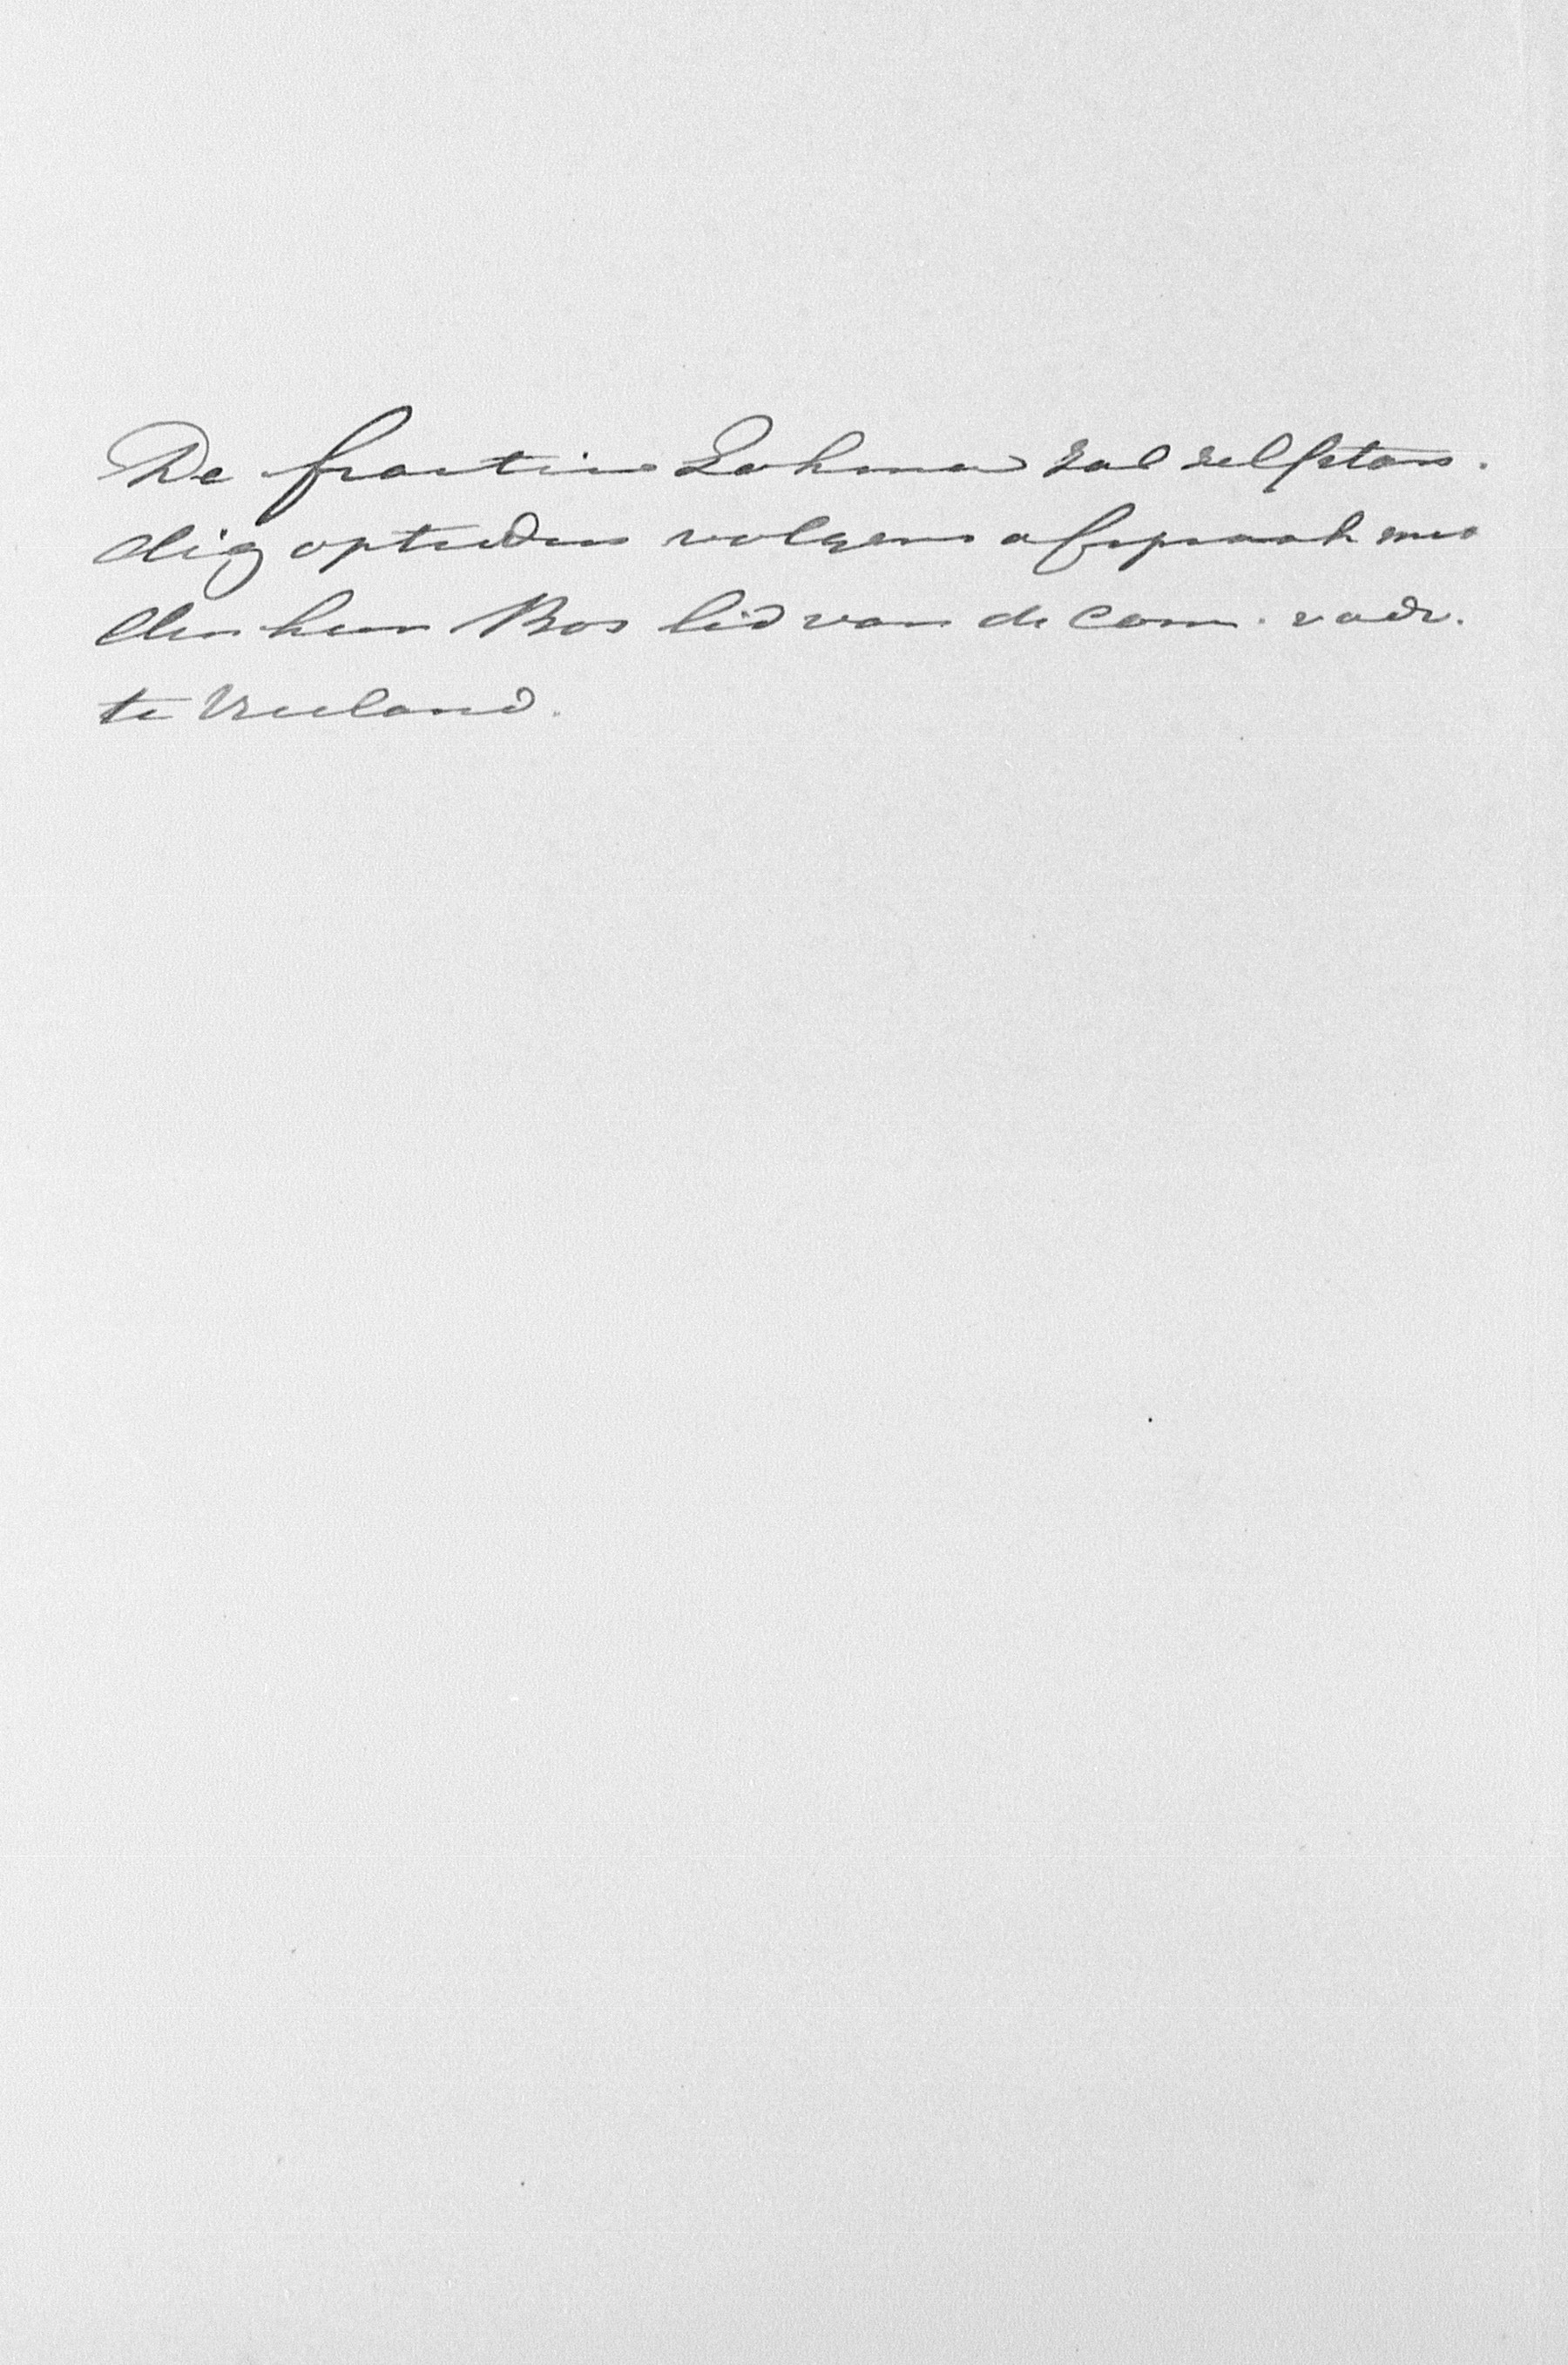 De fractie Lohman zal zelfstan-
dig optreden volgens afspraak met
den heer Bos lid van de Com. v adv.
te Vreeland.